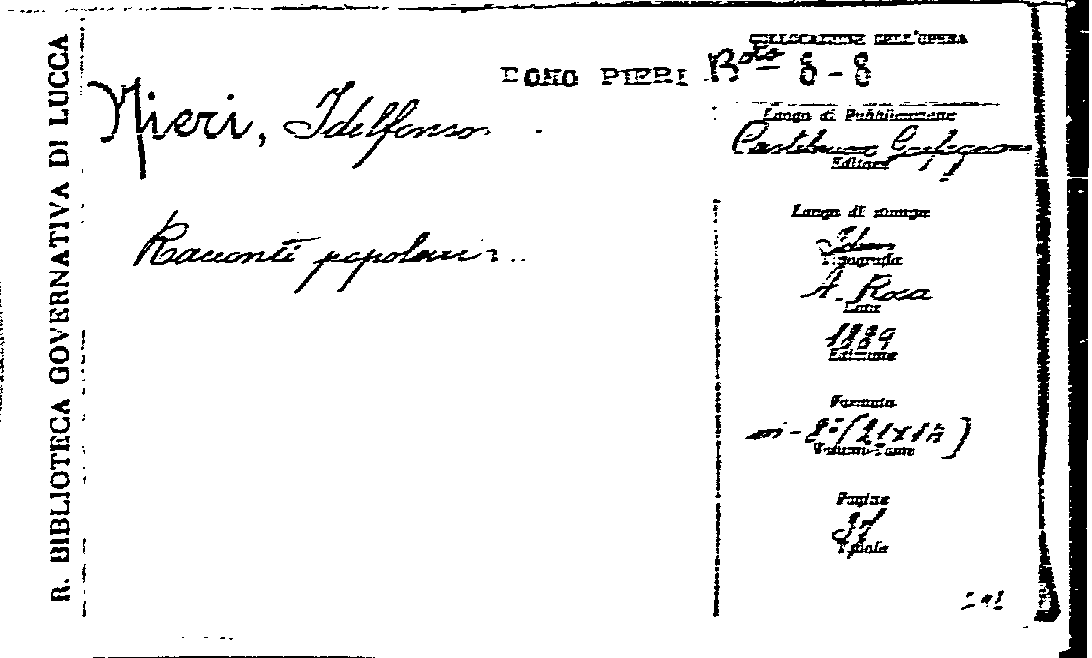 R. BIBLIOTECA GOVERNATIVA DI LUCCA
COLLOCAZIONE DELL'OPERA
DONO PIERI B.ta 8-8
Nieri, Idelfonso
Luogo di Pubblicazione
Castelnuovo Garfagnana
Editore
Racconti popolari...
Luogo di stampa
Idem
Tipografia
A. Rosa
Data
1889
Edizione
Formato
in-8º (21x1
Volumi-Tomi
Pagine
Tavole